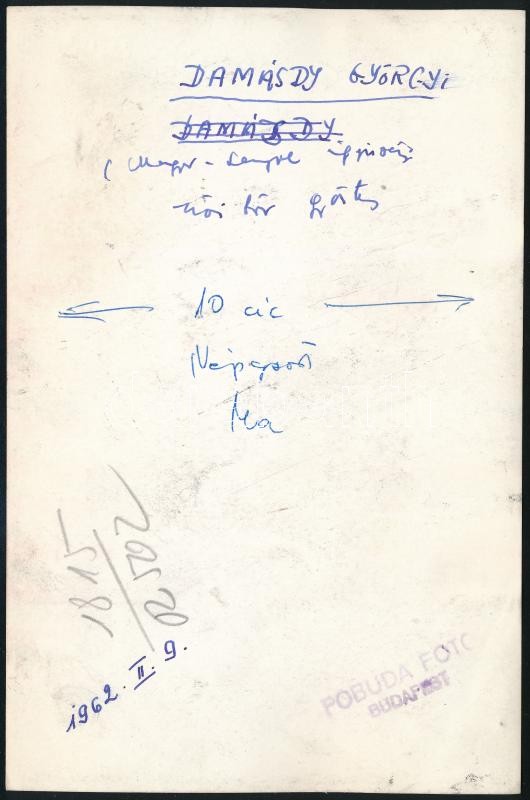 DAMÁSDY GYÖRGYI
DAMÁSDY
(Magyar - Lengyel ifjúsági
női tőr győztes
10 cic
Népsport
Ma
1815
02502
1962. II. 9.
POBUDA FOTO
BUDAPEST